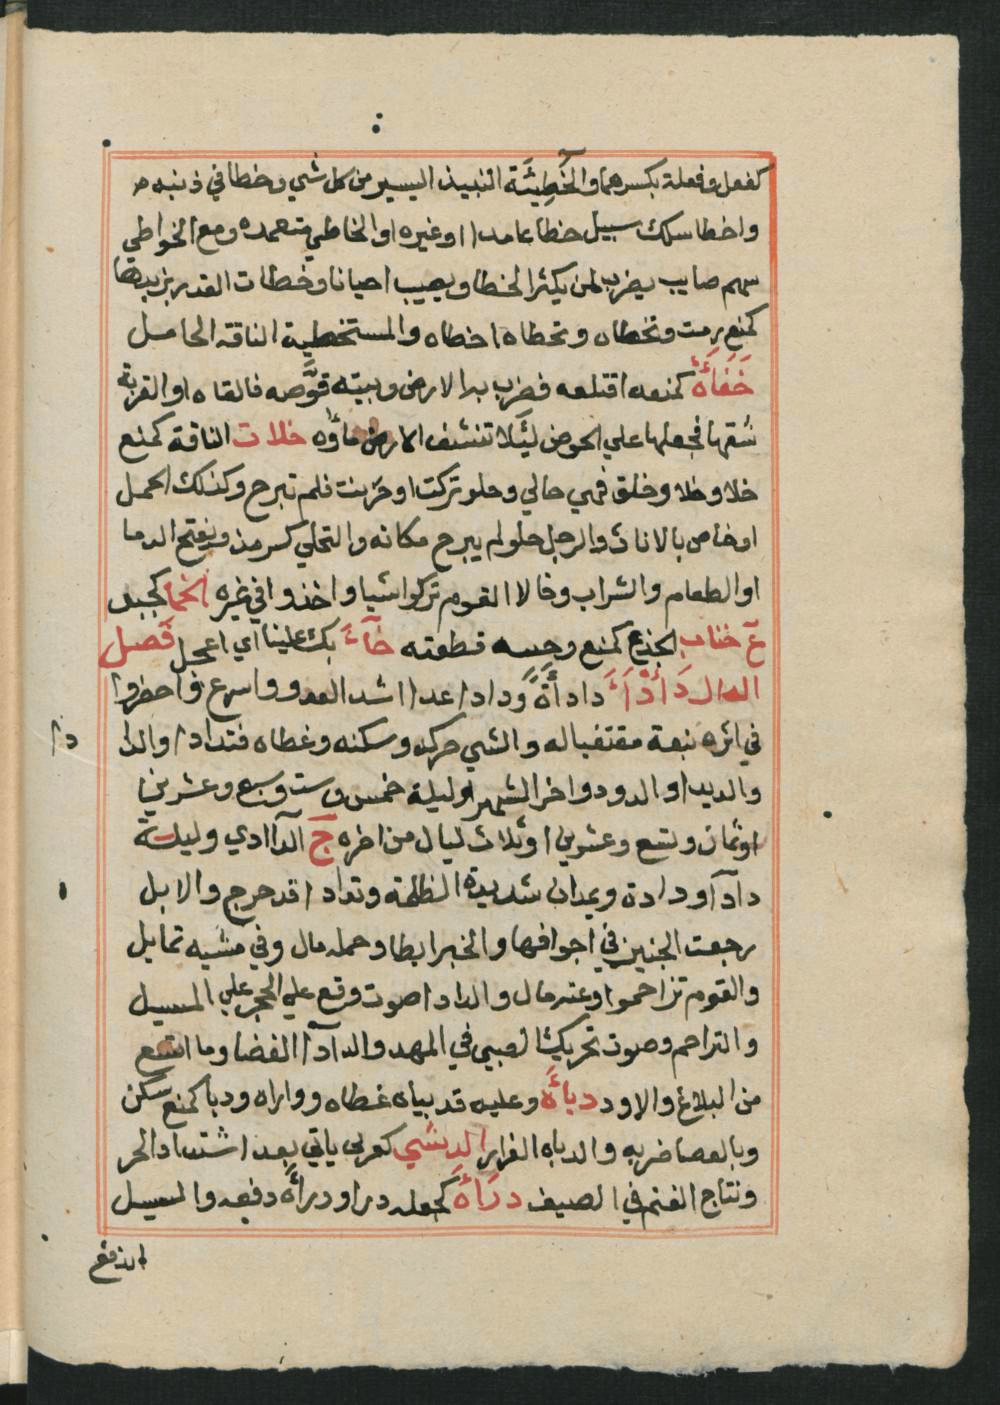 كفعل وفعلة بكسرهما والخَطِيئَة النبيذ اليسير من كل شي وخطا في ذنبه
واخطا سلك سبيل خطا عامدا او غيره او الخاطي متعمده ومع الخواطي
سهم صايب يضرب لمن يكثر الخطا ويصيب احيانا وخطات القدر بزبدها
كمنع رمت وتخطاه وتخطاه اخطاه والمستخطية الناقة الحامل
خَفَأَهُ كمنعه اقتلعه فضرب به الارض وبيته قوَّضه فالقاه او القربة
شقها فجعلها علي الحوض ليئلا تنشف الارض ماؤه خلات الناقة كمنع
خلا وخلا وخلق فهي خالي وخلو تركت او حرنت فلم تبرح وكذلك الجمل
او خاص بالاناث والرجل خلو لم يبرح مكانه والتحلي كترمذ ويفتح الدما
او الطعام والشراب وخالا القوم تركوا شيا واخذوا في غيره الخما كجبل
ع خناب الجذع كمنع وحسه قطعته خآءَ بك علينا اي اعجل فصل
الدال دَأْدَأَ دادأةً ودادا عدا اشد العدو واسرع واحضروا
في اثره تبعه مقتفيا له والشي حركه وسكنه وغطاه فتدادا والدا
دا
والديدا والدودو اخر الشهر او ليلة خمس وست وسبع وعشرين
او ثمان وتسع وعشرين او ثلاث ليال من اخره ج الدآادي وليلة
دادآ ودادة ويمدان شديدة الظلمة وتدادا تدحرج والابل
رجعت الجنين في اجوافها والخبر ابطا وحمله مال وفي مشيه تمايل
والقوم تزاحموا وعنه مال والدادا صوت وقع علي الحجر علي المسيل
والتراحم وصوت تحريك الصبي في المهد والدآدا الفضا وما اتسع
من البلاغ والاود دبأَهُ وعليه قد بياه غطاه وواراه ودبا كمنع سكن
وبالعصا ضربه والدباه الفرار الدثئي كعربي ياتي بعد اشتداد الحر
ونتاج الغنم في الصيف درَأَهُ كجعله درا ودرأة دفعه والسيل
اندفع